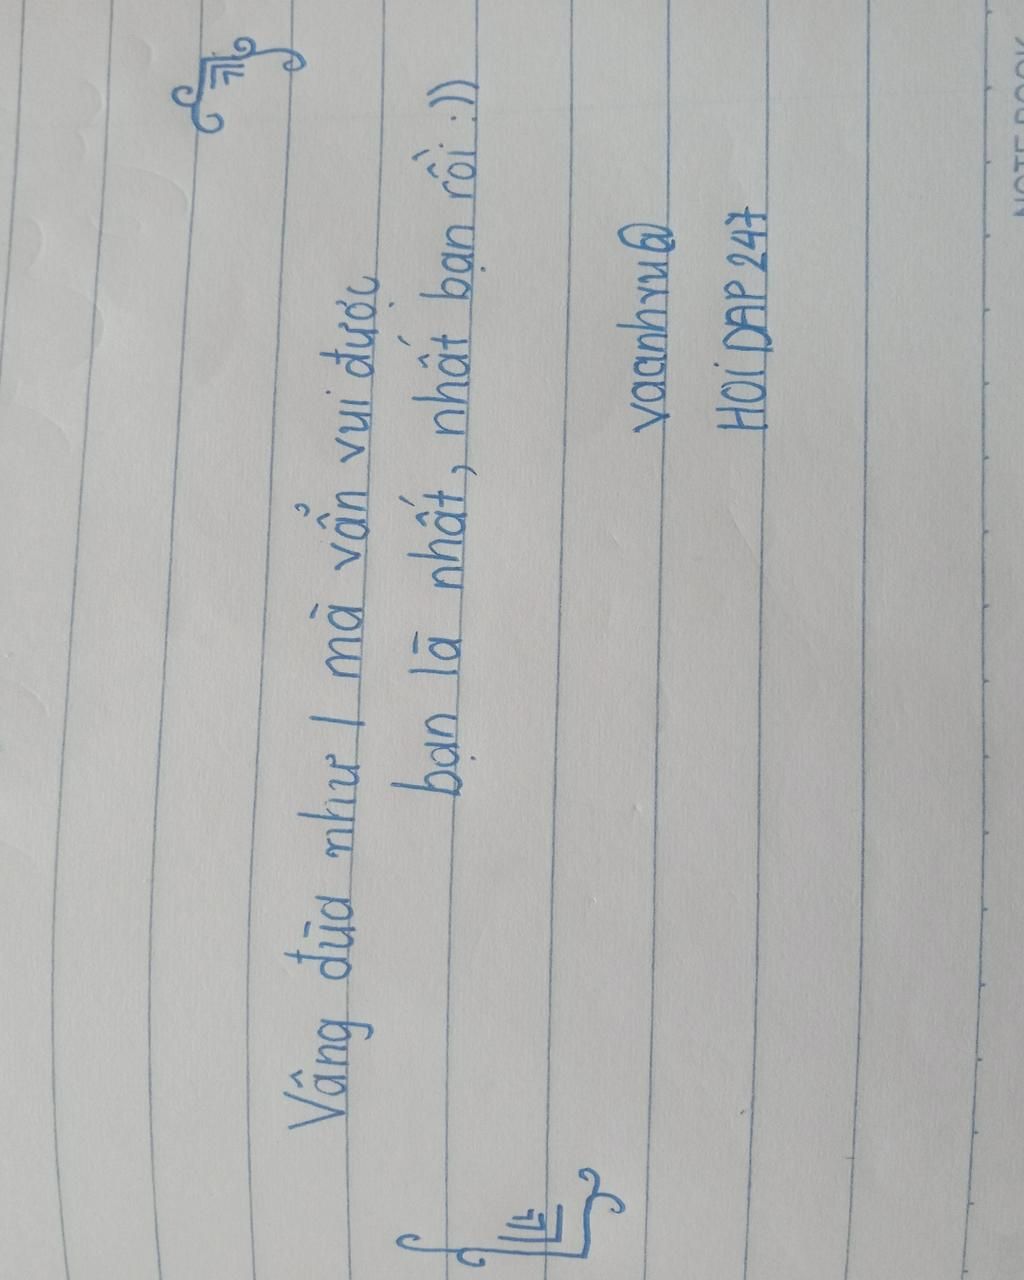 Vâng đùa như / mà vẩn vui được
bạn là nhất, nhất bạn rồi :))
vaanhvu@
HOI DAP 247
NOTEBOOK